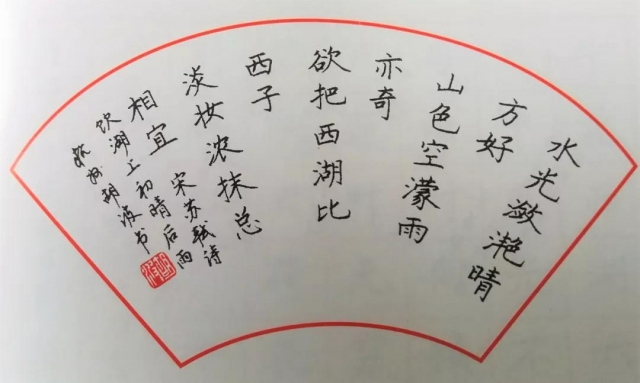 水光潋滟晴
方好
山色空濛雨
亦奇
欲把西湖比
西子
淡妆浓抹总
相宜
宋苏轼诗
饮湖上初晴后雨
杭州胡波书